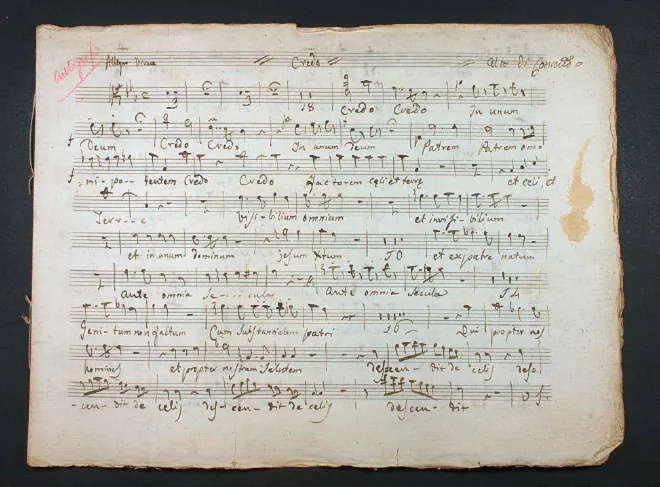 Allegro Credo Alto di Concerto
18 Credo Credo In unum
Deum Credo Credo In unum Deum Patrem Patrem omō
=ni-po-tentem Credo Credo factorem celi et terre et celi, et
Terr---e visi-bilium omnium et invisi-bilium
et in unum dominum Jesum Xtum 10 et ex patre natum
Ante omnia Se---cula Ante omnia Secula 14
Geni-tum non factum Cum Substantialem patri 10 Qui propter nos
homines et propter nostram Salutem descen-dit de celis des=
-cen-dit de celis des-cen-dit de celis descen-dit